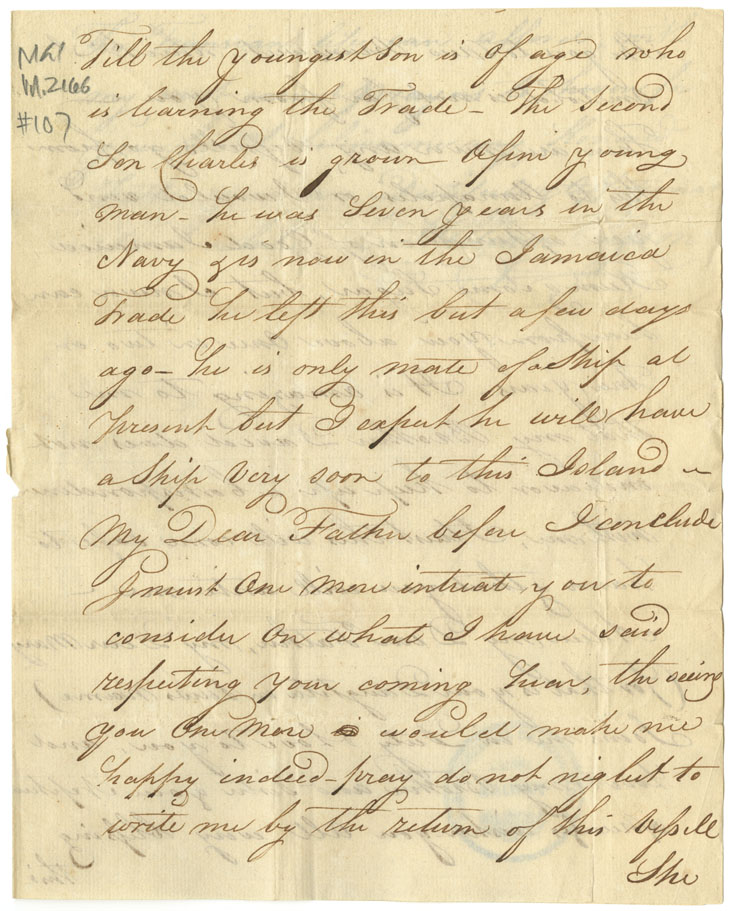 Ms1
M.2166
#107
Till the youngest Son is of age who
is learning the Trade - The Second
Son Charles is grown Afine young
man - he was Seven years in the
Navy & is now in the Jamaica
Trade he left this but a few days
ago - he is only mate of a Ship at
Present but I expect he will have
a Ship very soon to this Island ~
My Dear Father before I conclude
I must One More intreat you to
consider On what I have said
respecting your coming hear, the seeing
you One More would make me
happy indeed - pray do not neglect to
write me by the return of this Vessell
She